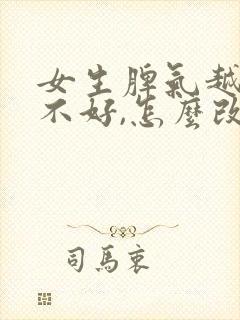 女生脾氣越
不好,怎麼改
司馬衷